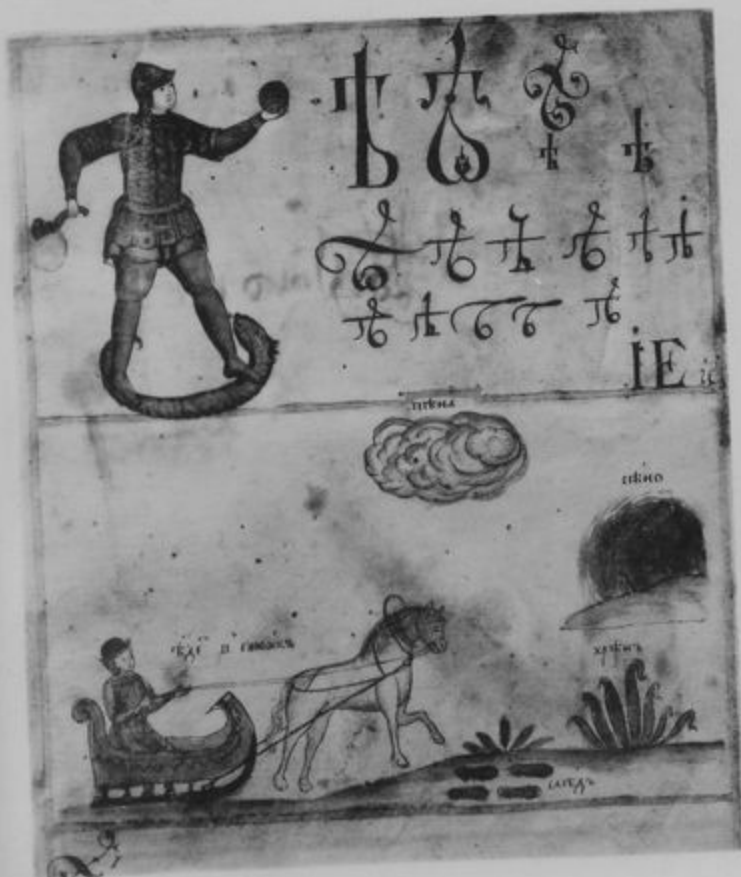 Ѣ Ѣ Ѣ
ѣ ѣ
ѣ ѣ ѣ ѣ ѣ ѣ
ѣ ѣ ѣ
ІЕ іе
пѣна
сѣно
ѣде в
хрѣнъ
слѣдъ